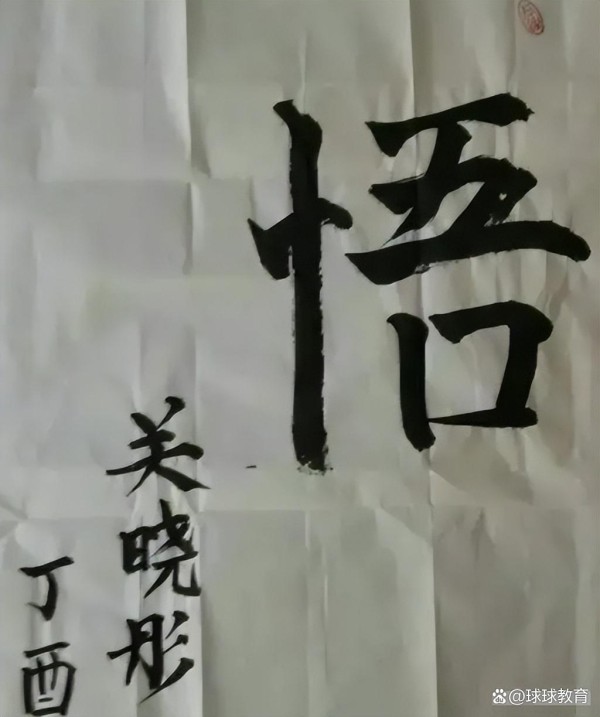 悟
关晓彤
丁酉
球球教育